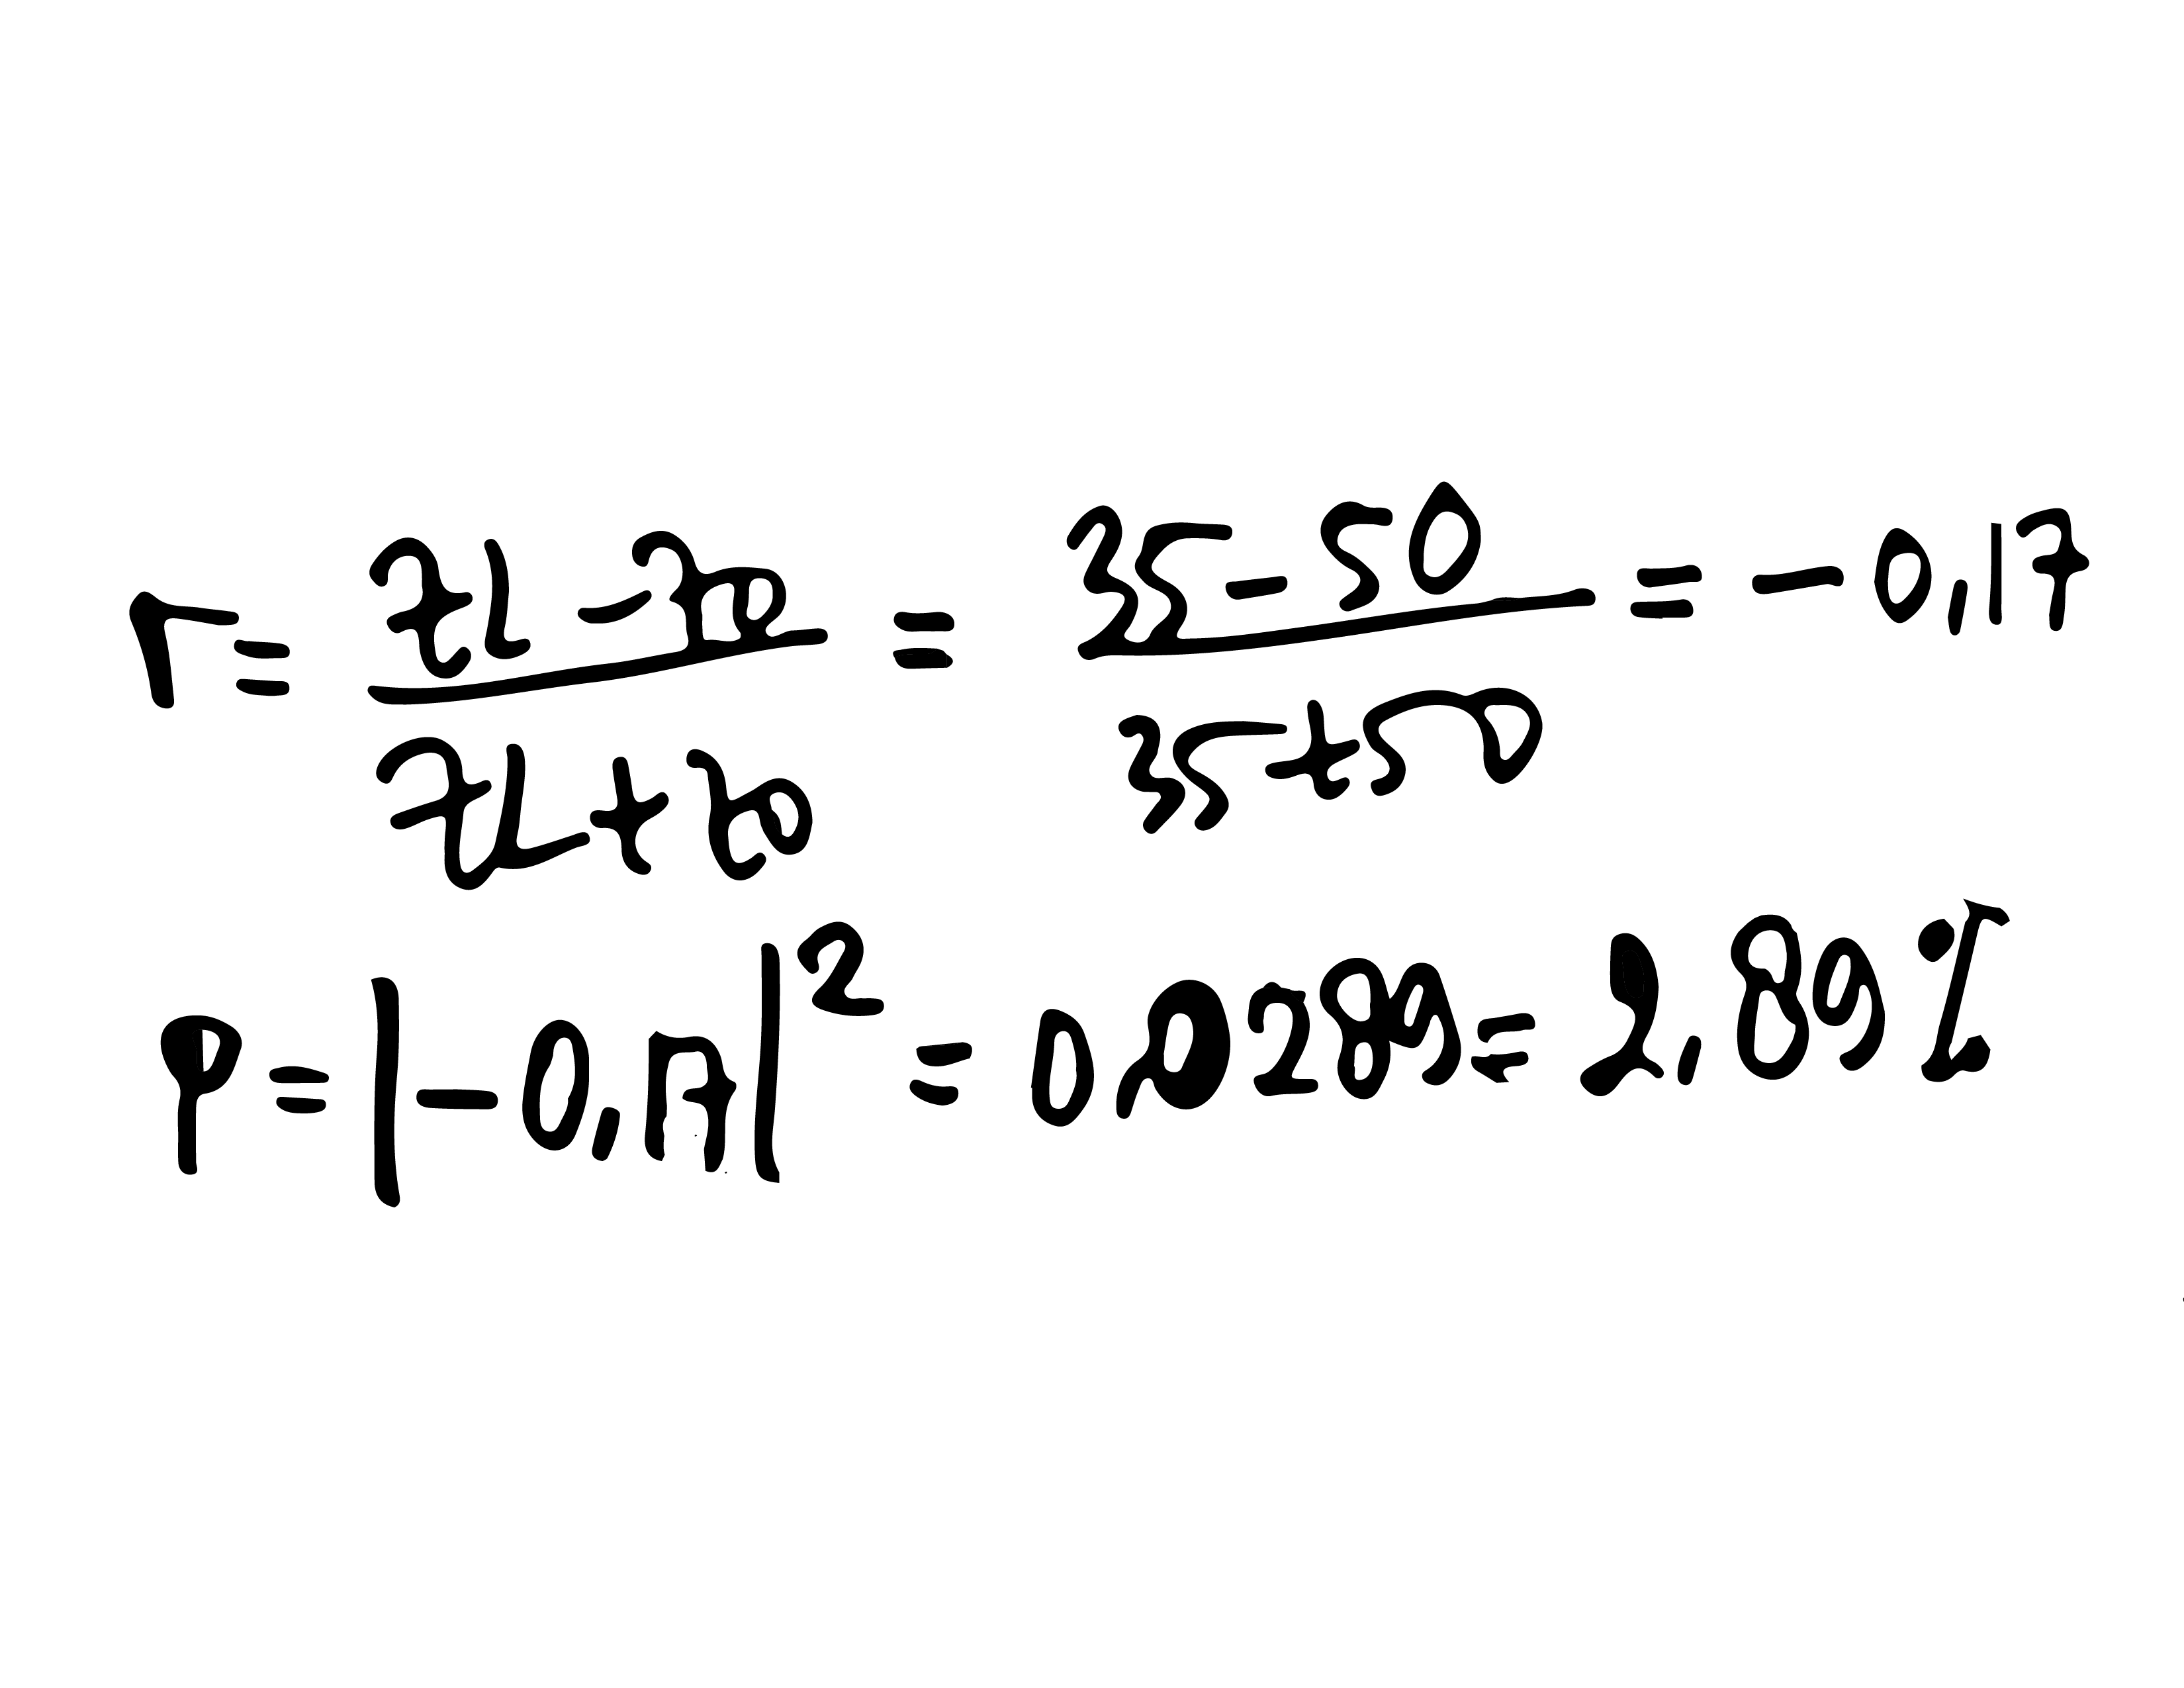 Γ = (ZL - Z0) / (ZL + Z0) = (35 - 50) / (35 + 50) = -0,17
P = |-0,17|² = 0,0289 = 2.89%